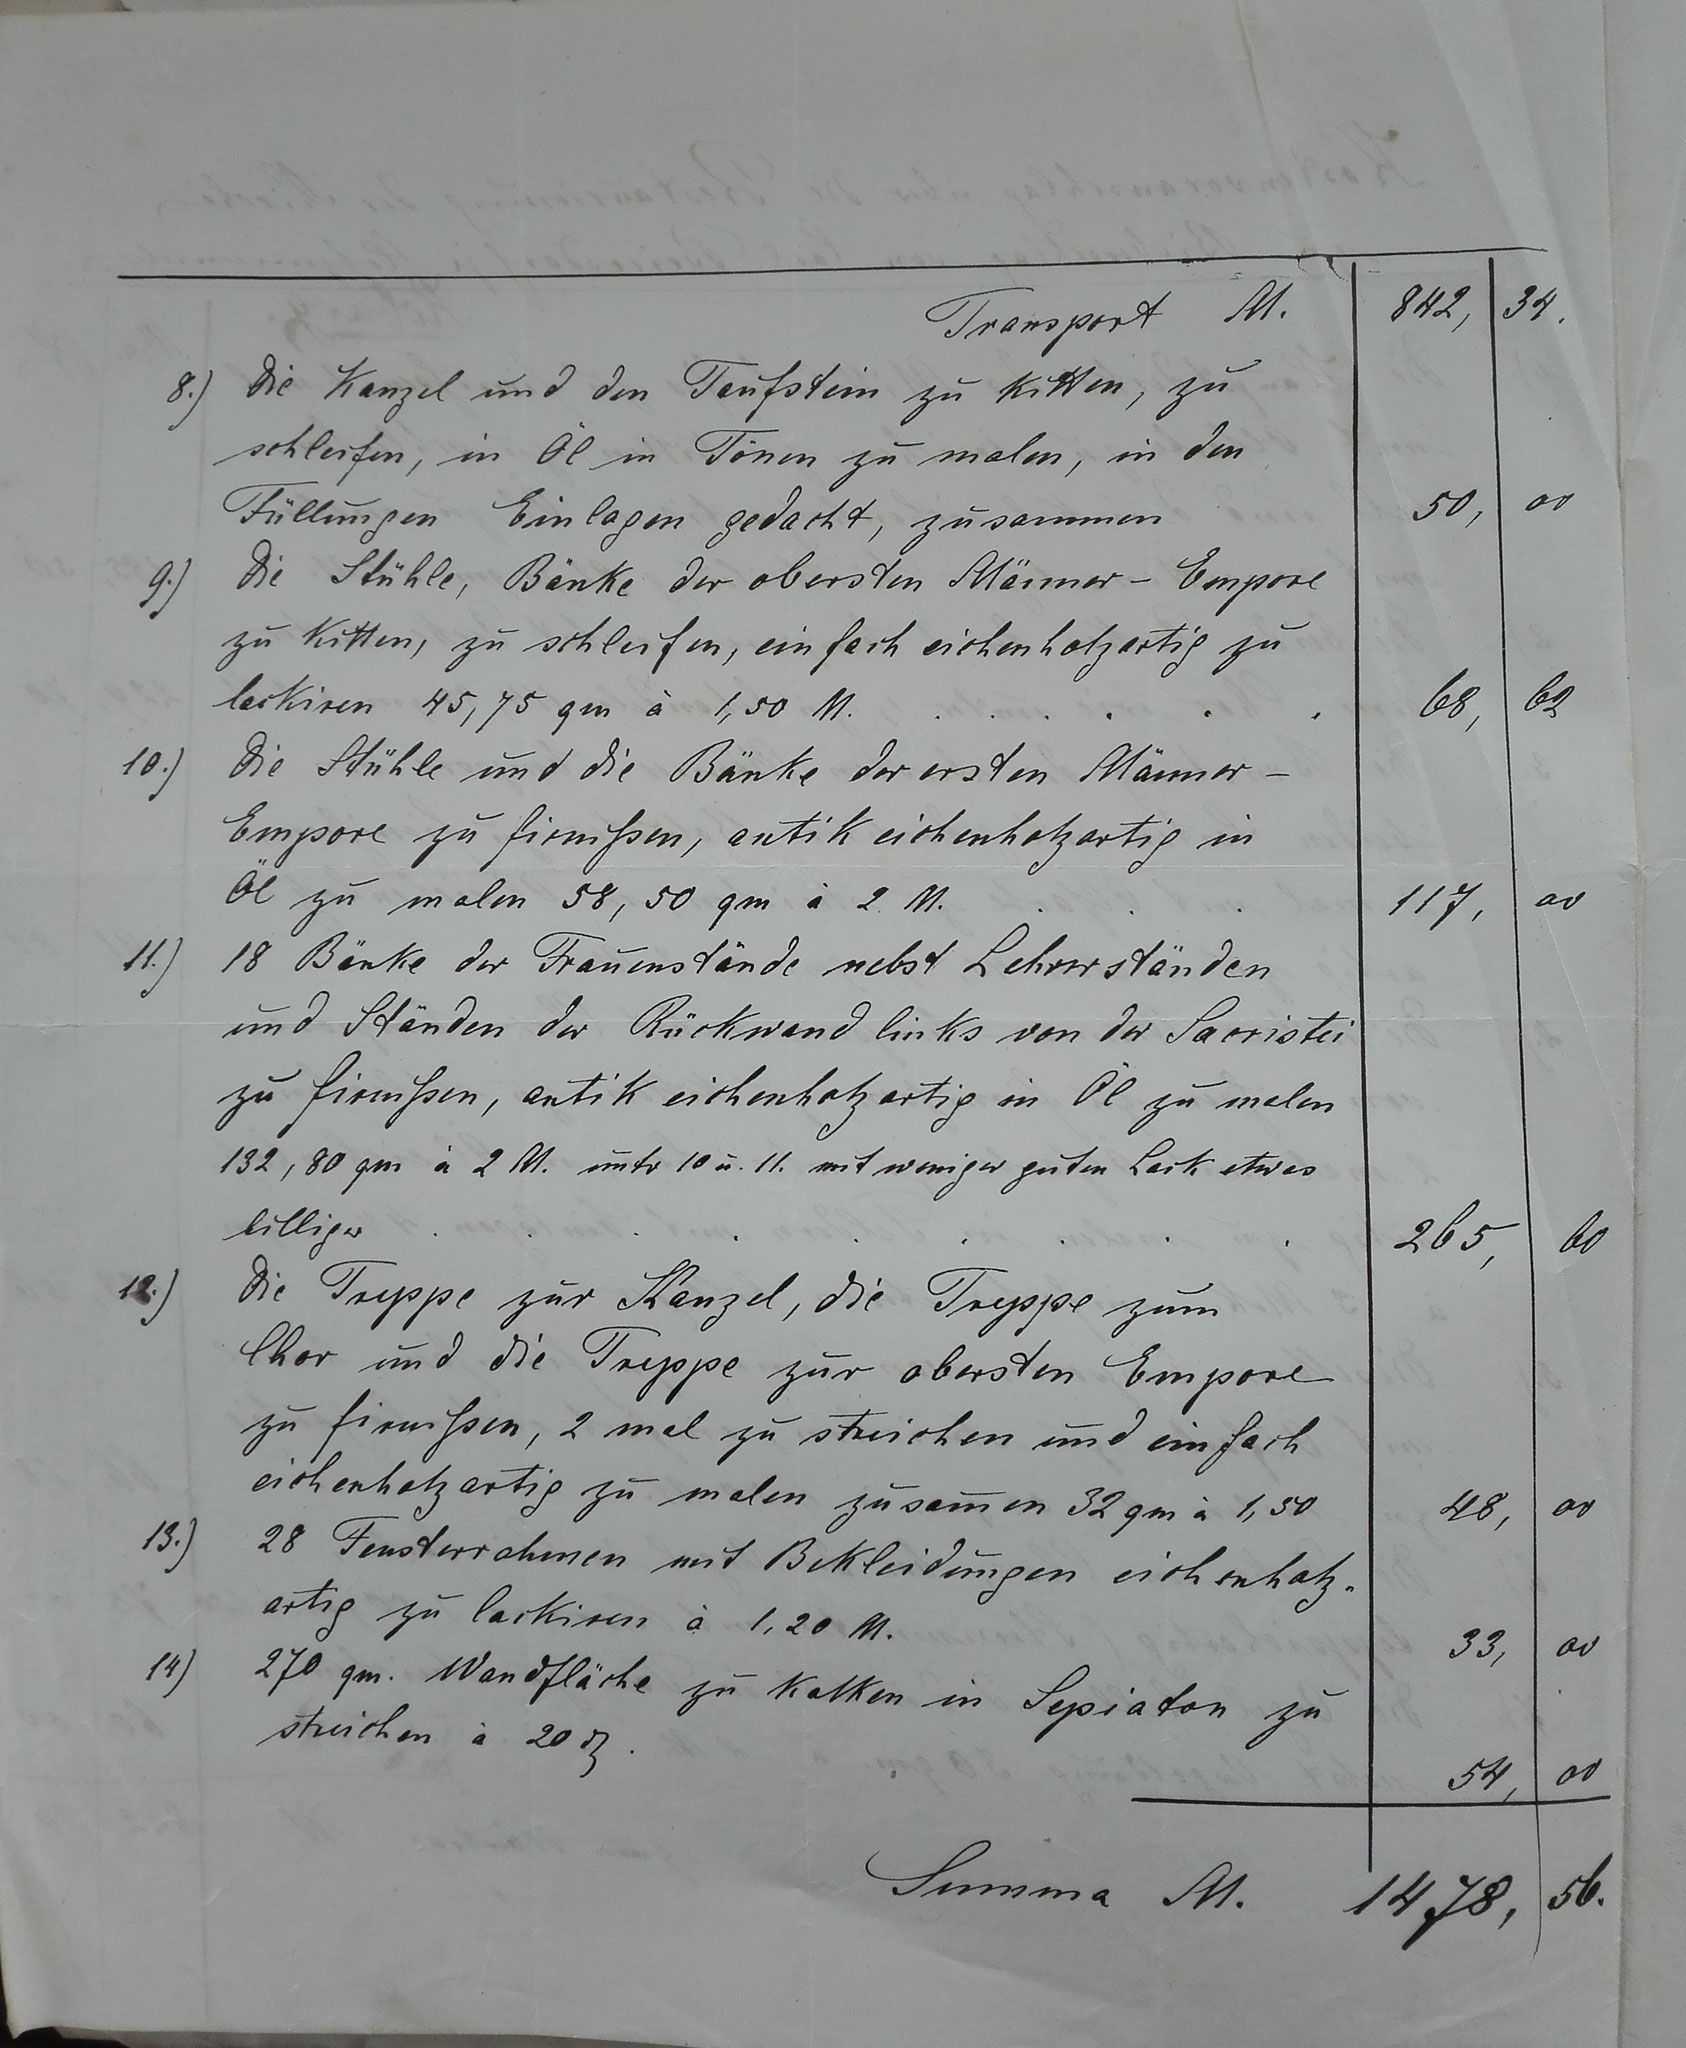 Transport M. 842, 34.
8.) Die Kanzel und den Taufstein zu kitten, zu
schleifen, in Öl in Tönen zu malen, in den
Füllungen Einlagen gedacht, zusammen 50, 00
9.) Die Stühle, Bänke der obersten Männer-Empore
zu kitten, zu schleifen, einfach eichenholzartig zu
lackiren 45,75 qm à 1,50 M. . . . . . . 68, 62
10.) Die Stühle und die Bänke der ersten Männer-
Empore zu firnißen, antik eichenholzartig in
Öl zu malen 58,50 qm à 2 M. . . . 117, 00
11.) 18 Bänke der Frauenstände nebst Lehrerständen
und Ständen der Rückwand links von der Sacristei
zu firnißen, antik eichenholzartig in Öl zu malen
132,80 qm à 2 M. unter 10 u. 11. mit weniger guten Lack etwas
billiger . . . . . . . . . 265, 60
12.) Die Treppe zur Kanzel, die Treppe zum
Chor und die Treppe zur obersten Empore
zu firnißen, 2 mal zu streichen und einfach
eichenholzartig zu malen zusam̄en 32 qm à 1,50 48, 00
13.) 28 Fensterrahmen mit Bekleidungen eichenholz-
artig zu lackiren à 1,20 M. 33, 00
14) 270 qm. Wandfläche zu kalken in Sepiaton zu
streichen à 20 ₰. 54, 00
Summa M. 1478, 56.